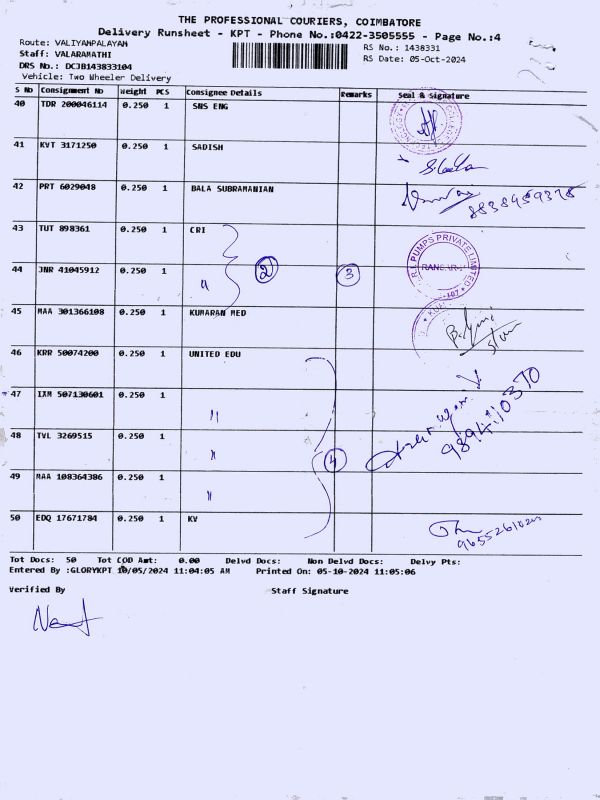 THE PROFESSIONAL COURIERS, COIMBATORE
Delivery Runsheet - KPT - Phone No.:0422-3505555 - Page No.:4
Route: VALIYAMPALAYAM
Staff: VALARAMATHI
DRS No.: DCJB143833104
Vehicle: Two Wheeler Delivery
RS No.: 1438331
RS Date: 05-Oct-2024
S No Consignment No Weight PCS Consignee Details Remarks Seal & Signature
40 TDR 200046114 0.250 1 SNS ENG
41 KVT 3171250 0.250 1 SADISH
42 PRT 6029048 0.250 1 BALA SUBRAMANIAN
8838459378
43 TUT 898361 0.250 1 CRI
R.I. PUMPS PRIVATE LIMITED
44 JNR 41045912 0.250 1 " 2 3
45 MAA 301366108 0.250 1 KUMARAN MED
46 KRR 50074200 0.250 1 UNITED EDU
47 IXM 507130601 0.250 1 "
9894110370
48 TVL 3269515 0.250 1 " 4
49 MAA 108364386 0.250 1 "
50 EDQ 17671784 0.250 1 KV
Tot Docs: 50 Tot COD Amt: 0.00 Delvd Docs: Non Delvd Docs: Delvy Pts:
Entered By :GLORYKPT 10/05/2024 11:04:05 AM Printed On: 05-10-2024 11:05:06
Verified By Staff Signature